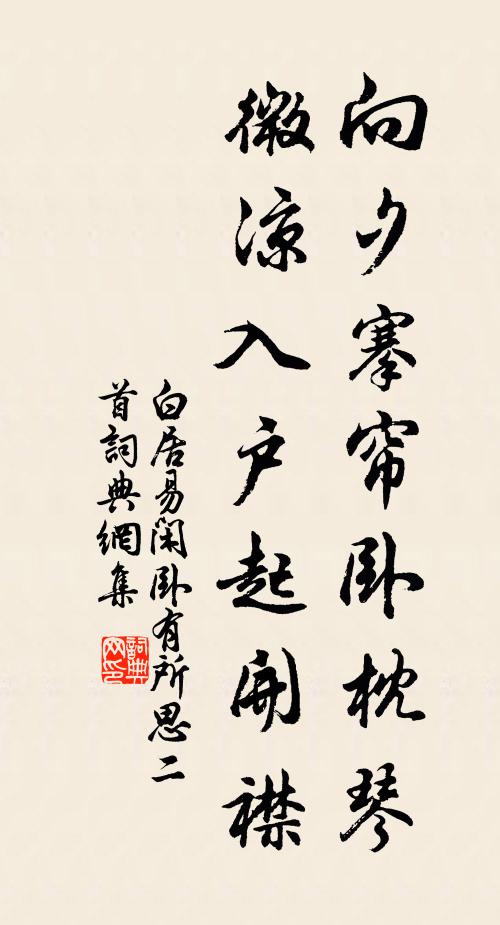 向夕搴帘卧枕琴
微凉入户起開襟
白居易閑卧有所思二
首詞典網集
詞典网印